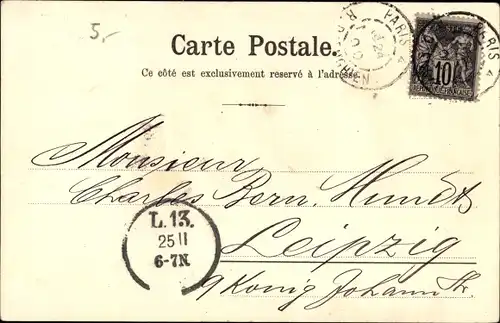 5.-
Carte Postale.
Ce côté est exclusivement reservé à l'adresse.
PARIS 4
PARIS 4
10
Monsieur
Charles Bern. Hundt
Leipzig
9 König Johann Str.
L.13.
25 II
6-7N.